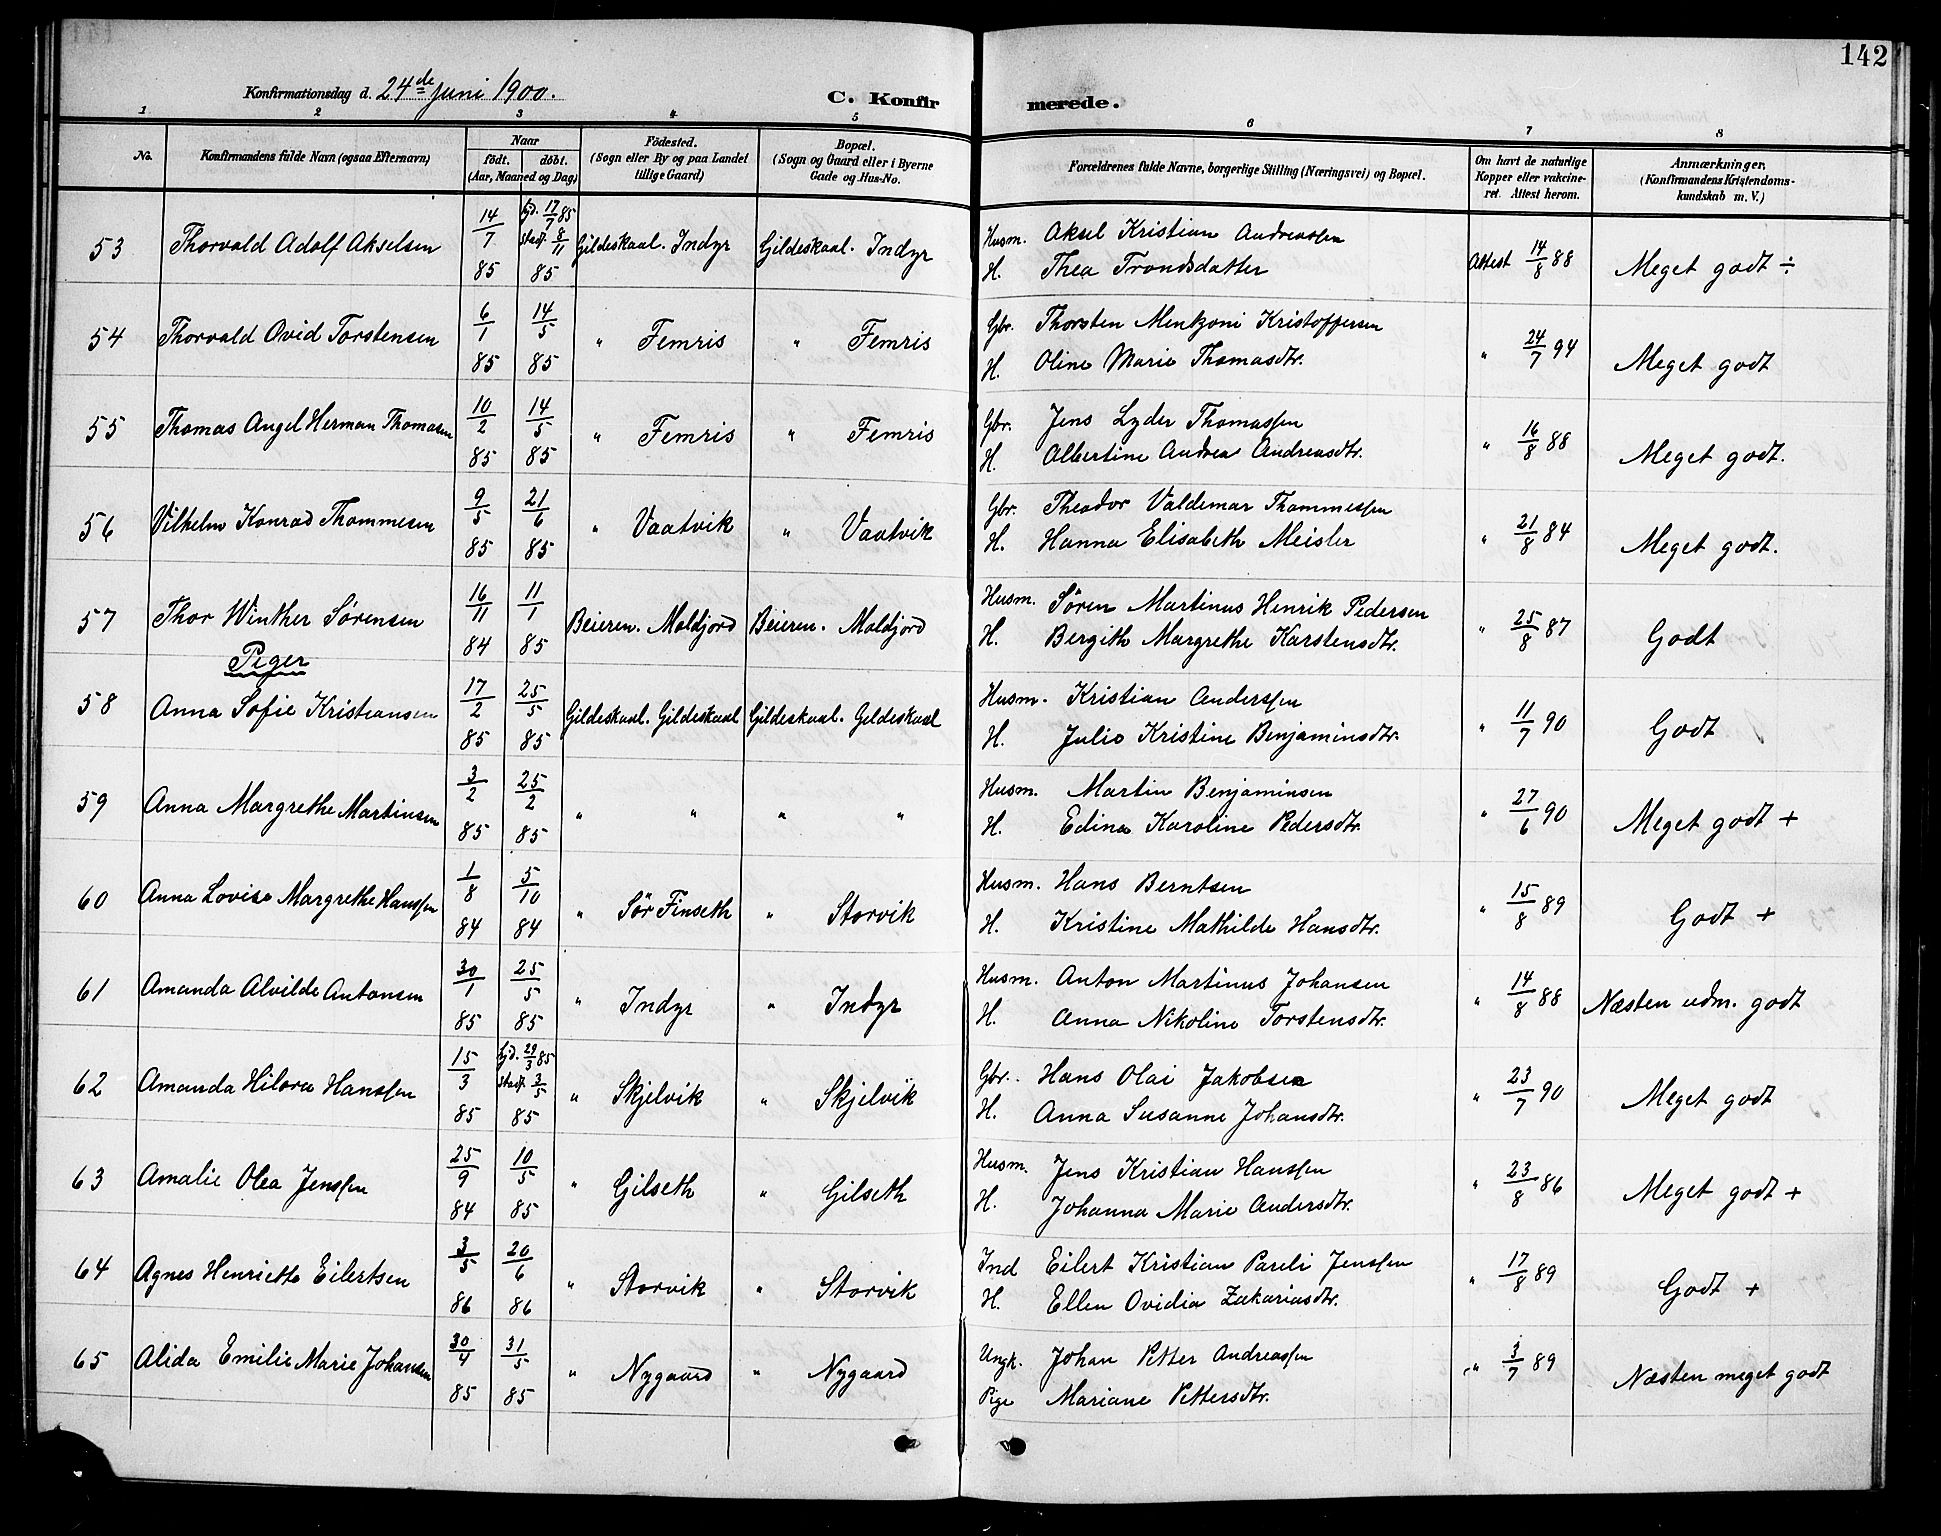 142
Konfirmationsdag d. 24de Juni 1900.
C. Konfirmerede.
1 2 3 4 5 6 7 8
No. | Konfirmandens fulde Navn (ogsaa Efternavn) | Naar født. døbt. (Aar, Maaned og Dag) | Fødested. (Sogn eller By og paa Landet tillige Gaard) | Bopæl. (Sogn og Gaard eller i Byerne Gade og Hus-No. | Forældrenes fulde Navne, borgerlige Stilling (Næringsvei) og Bopæl. | Om havt de naturlige Kopper eller vakcineret. Attest herom. | Anmærkninger, (Konfirmandens Kristendomskundskab m. V.)
53 | Thorvald Adolf Akselsen | 14/7 85 | hjd. 17/7 85 stadf. 8/11 85 | Gildeskaal. Indyr | Gildeskaal. Indyr | Husm. Aksel Kristian Andreassen | Attest 14/8 88 | Meget godt ÷
H. Thea Trondsdatter
54 | Thorvald Ovid Torstensen | 6/1 85 | 14/5 85 | " Femris | " Femris | Gbr. Thorsten Mentzoni Kristoffersen | " 24/7 94 | Meget godt
H. Oline Marie Thomasdtr.
55 | Thomas Angel Herman Thomasen | 10/2 85 | 14/5 85 | " Femris | " Femris | Gbr. Jens Lyder Thomassen | " 16/8 88 | Meget godt.
H. Albertine Andrea Andreasdtr.
56 | Vilhelm Konrad Thommesen | 9/5 85 | 21/6 85 | " Vaatvik | " Vaatvik | Gbr. Theodor Valdemar Thommessen | " 21/8 84 | Meget godt.
H. Hanna Elisabeth Meisler
57 | Thor Winther Sørensen | 16/11 84 | 11/1 85 | Beieren. Moldjord | Beieren. Moldjord | Husm. Søren Martinus Henrik Pedersen | " 25/8 87 | Godt
H. Bergith Margrethe Karstensdtr.
Piger
58 | Anna Sofie Kristiansen | 17/2 85 | 25/5 85 | Gildeskaal. Gildeskaal | Gildeskaal. Gildeskaal | Husm. Kristian Anderssen | " 11/7 90 | Godt
H. Julie Kristine Benjaminsdtr.
59 | Anna Margrethe Martinsen | 3/2 85 | 25/2 85 | " " | " " | Husm. Martin Benjaminsen | " 27/6 90 | Meget godt +
H. Edina Karoline Pedersdtr.
60 | Anna Lovise Margrethe Hanssen | 1/8 84 | 5/10 84 | " Sør Finseth | " Storvik | Husm. Hans Berntsen | " 15/8 89 | Godt +
H. Kristine Mathilde Hansdtr.
61 | Amanda Alvilde Antonsen | 30/1 85 | 25/5 85 | " Indyr | " Indyr | Husm. Anton Martinus Johansen | " 14/8 88 | Næsten udm. godt
H. Anna Nikoline Torstensdtr.
62 | Amanda Hilora Hanssen | 15/3 85 | hjd. 29/3 85 stadf. 3/5 85 | " Skjelvik | " Skjelvik | Gbr. Hans Olai Jakobsen | " 23/7 90 | Meget godt
H. Anna Susanne Johansdtr.
63 | Amalie Olea Jenssen | 25/9 84 | 10/5 85 | " Gilseth | " Gilseth | Husm. Jens Kristian Hanssen | " 23/8 86 | Meget godt +
H. Johanna Marie Andersdtr.
64 | Agnes Henriette Eilertsen | 3/5 86 | 20/6 86 | " Storvik | " Storvik | Ind Eilert Kristian Pareli Jenssen | " 17/8 89 | Godt +
H. Ellen Ovidia Zakariasdtr.
65 | Alida Emilie Marie Johansen | 30/4 85 | 31/5 85 | " Nygaard | " Nygaard | Ungk. Johan Petter Andreassen | " 3/7 89 | Næsten meget godt
Pige Mariane Pettersdtr.